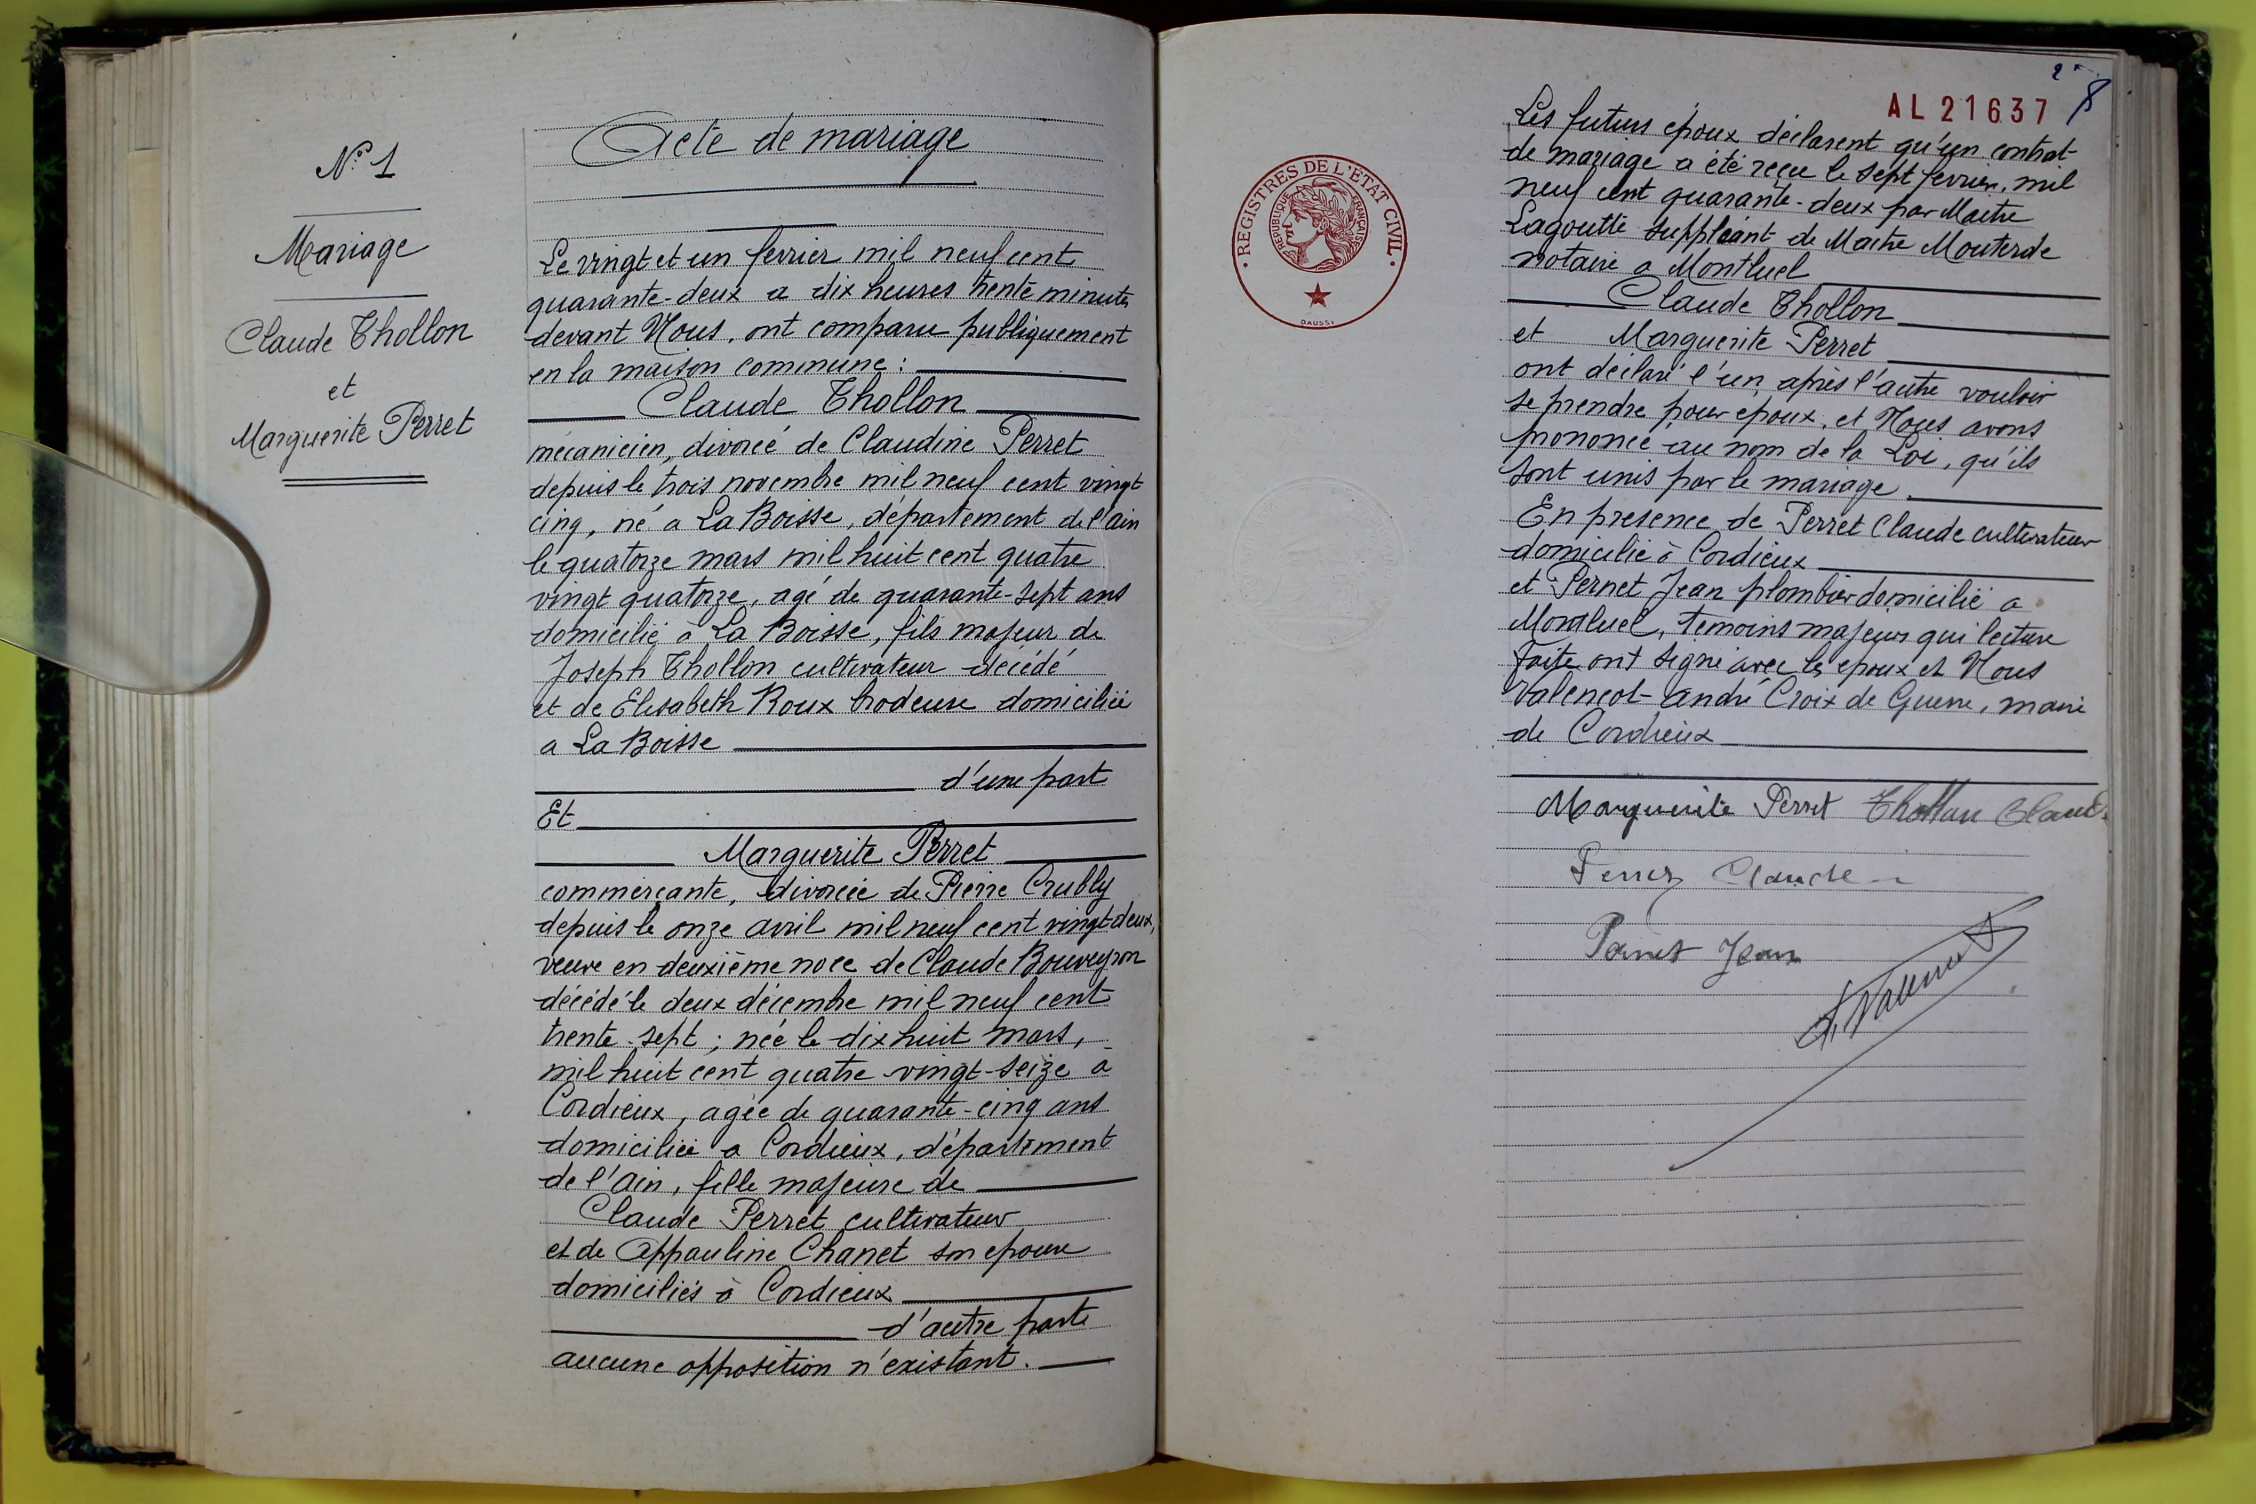 N° 1
Mariage
Claude Thollon
et
Marguerite Perret
Acte de mariage
Le vingt et un fevrier mil neuf cent
quarante-deux a dix heures trente minutes
devant Nous, ont comparu publiquement
en la maison commune :
Claude Thollon
mécanicien, divorcé de Claudine Perret
depuis le trois novembre mil neuf cent vingt
cinq, né a La Boisse, département de l'ain
le quatorze mars mil huit cent quatre
vingt quatorze, agé de quarante-sept ans
domicilié à La Boisse, fils majeur de
Joseph Thollon cultivateur décédé
et de Elisabeth Roux brodeuse domiciliée
a La Boisse
d'une part
Et
Marguerite Perret
commerçante, divorcée de Pierre Crubly
depuis le onze avril mil neuf cent vingt-deux,
veuve en deuxième noce de Claude Bouveyron
décédé le deux décembre mil neuf cent
trente-sept ; née le dix huit mars,
mil huit cent quatre vingt-seize à
Cordieux, agée de quarante-cinq ans
domiciliée a Cordieux, département
de l'ain, fille majeure de
Claude Perret cultivateur
et de Appauline Chanet son epouse
domiciliés à Cordieux
d'autre part
aucune opposition n'existant.
AL 21637
REGISTRES DE L'ETAT CIVIL
REPUBLIQUE FRANÇAISE
DAUSSY
Les futurs époux déclarent qu'un contrat
de mariage a été reçu le sept fevrier, mil
neuf cent quarante-deux par Maitre
Lagoutte suppléant de Maitre Mouterde
notaire a Montluel
Claude Thollon
et Marguerite Perret
ont déclaré l'un après l'autre vouloir
se prendre pour epoux, et Nous avons
prononcé au nom de la Loi, qu'ils
sont unis par le mariage
En presence de Perret Claude cultivateur
domicilié à Cordieux
et Pernet Jean plombier domicilié a
Montluel, temoins majeurs qui lecture
faite ont signé avec les epoux et Nous
Valençot andré Croix de Guerre, maire
de Cordieux
Marguerite Perret Thollon Claude
Perret Claude
Pernet Jean
A. Valençot